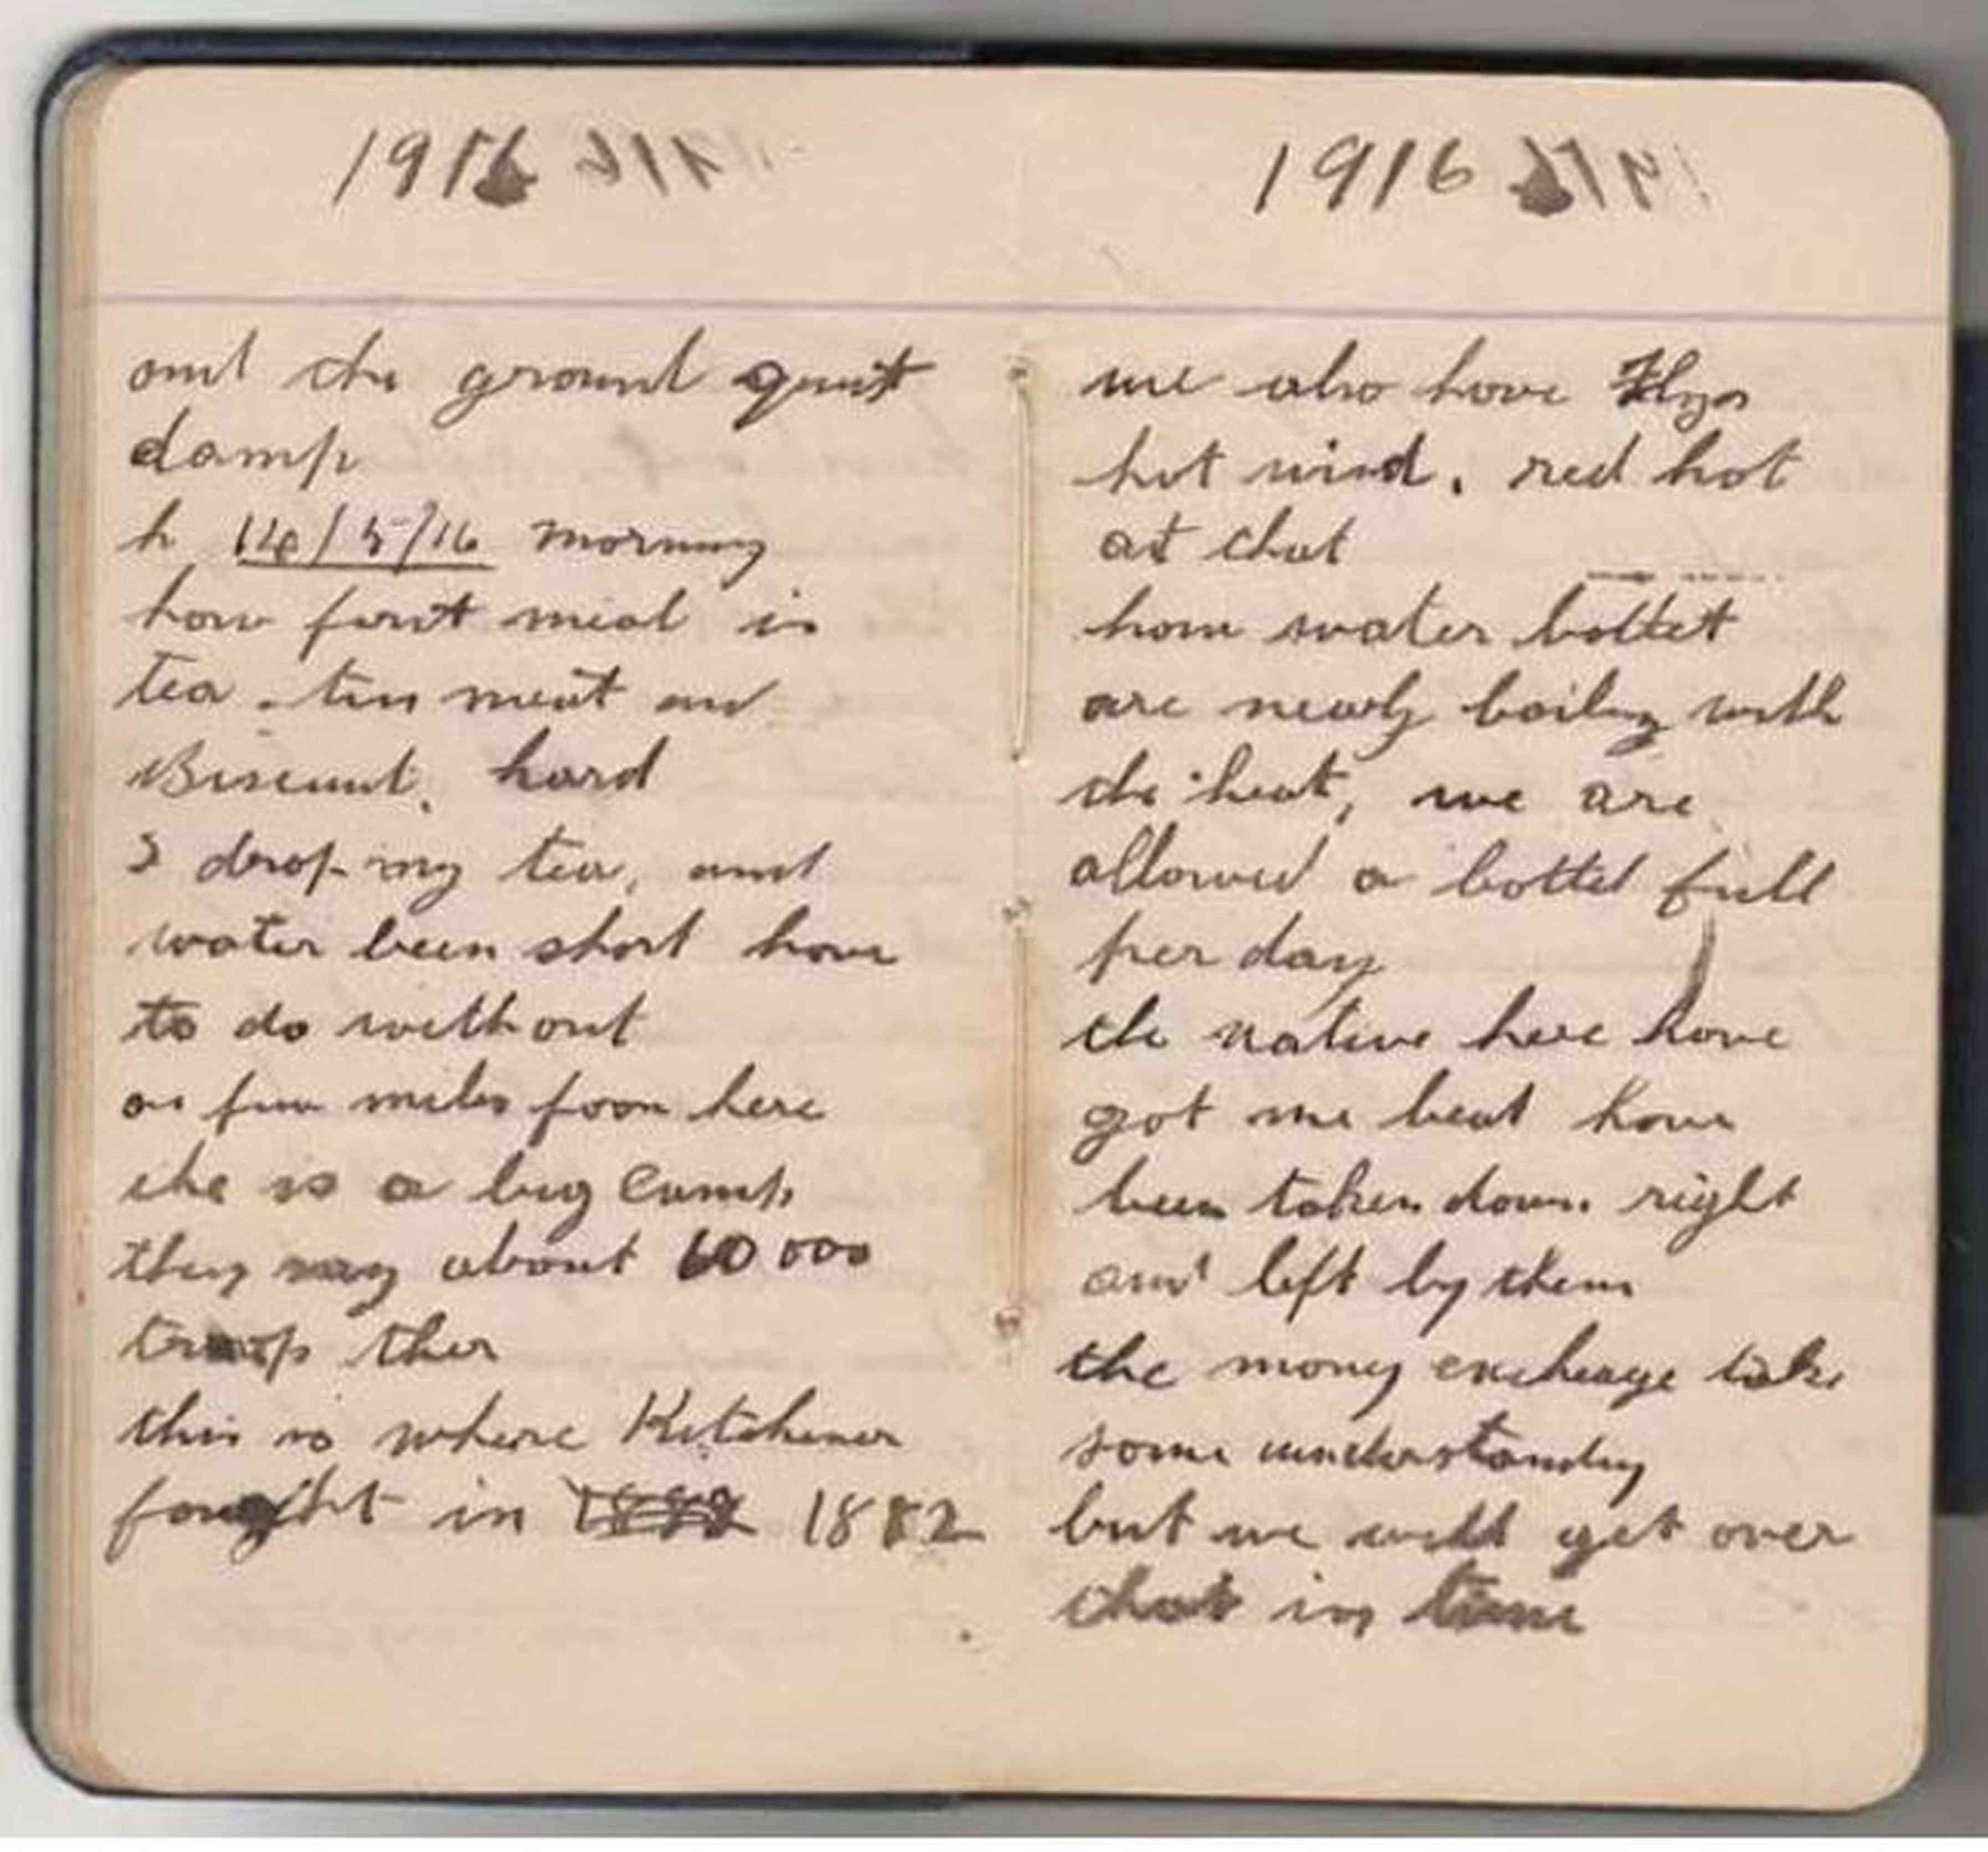 1916
and the ground quit
damp
h 14/5/16 morning
how first meal is
tea . tin meat and
Biscuut. hard
I drop my tea, and
water been short have
to do without
a few miles foom here
the is a big Camp
they say about 60 000
troop ther
this is where Kitchener
fought in 1882 1882
1916
we also have Flys
hot wind. red hot
at that
how water bottet
are nearly boiling with
the heat, we are
allowed a bottel full
per day
the native here have
got me beat have
been taken down right
and left by them
the money exchange take
some understanding
but we will get over
that in time